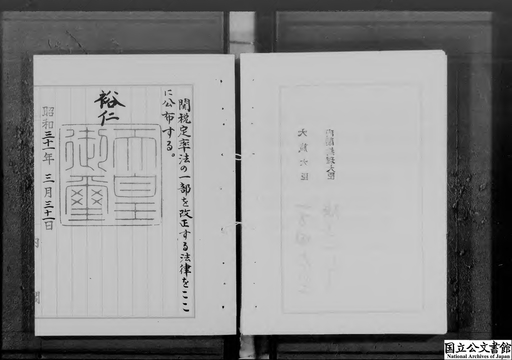 関税定率法の一部を改正する法律をここ
に公布する。
裕仁
天皇
御璽
昭和三十一年 三月三十一日
内閣総理大臣
大蔵大臣
国立公文書館
National Archives of Japan